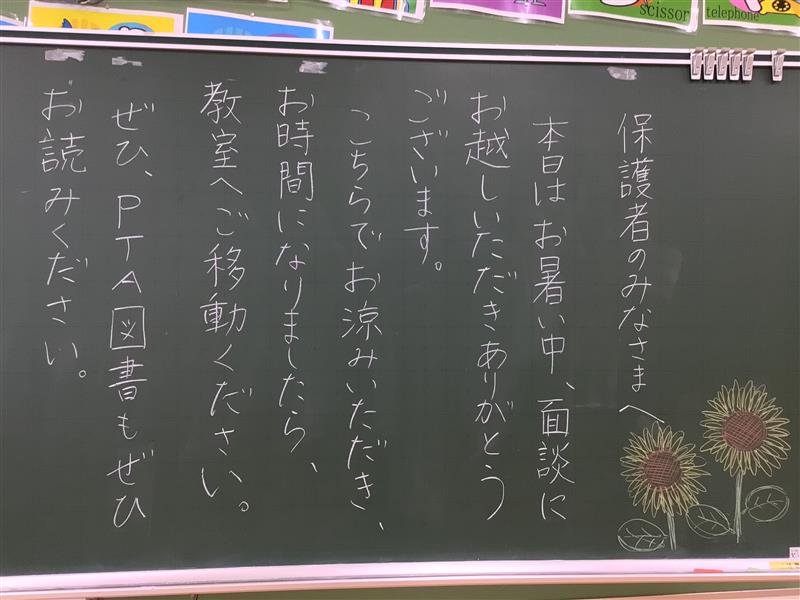 scissor
telephone
保護者のみなさまへ
本日はお暑い中、面談に
お越しいただきありがとう
ございます。
こちらでお涼みいただき、
お時間になりましたら、
教室へご移動ください。
ぜひ、PTA図書もぜひ
お読みください。